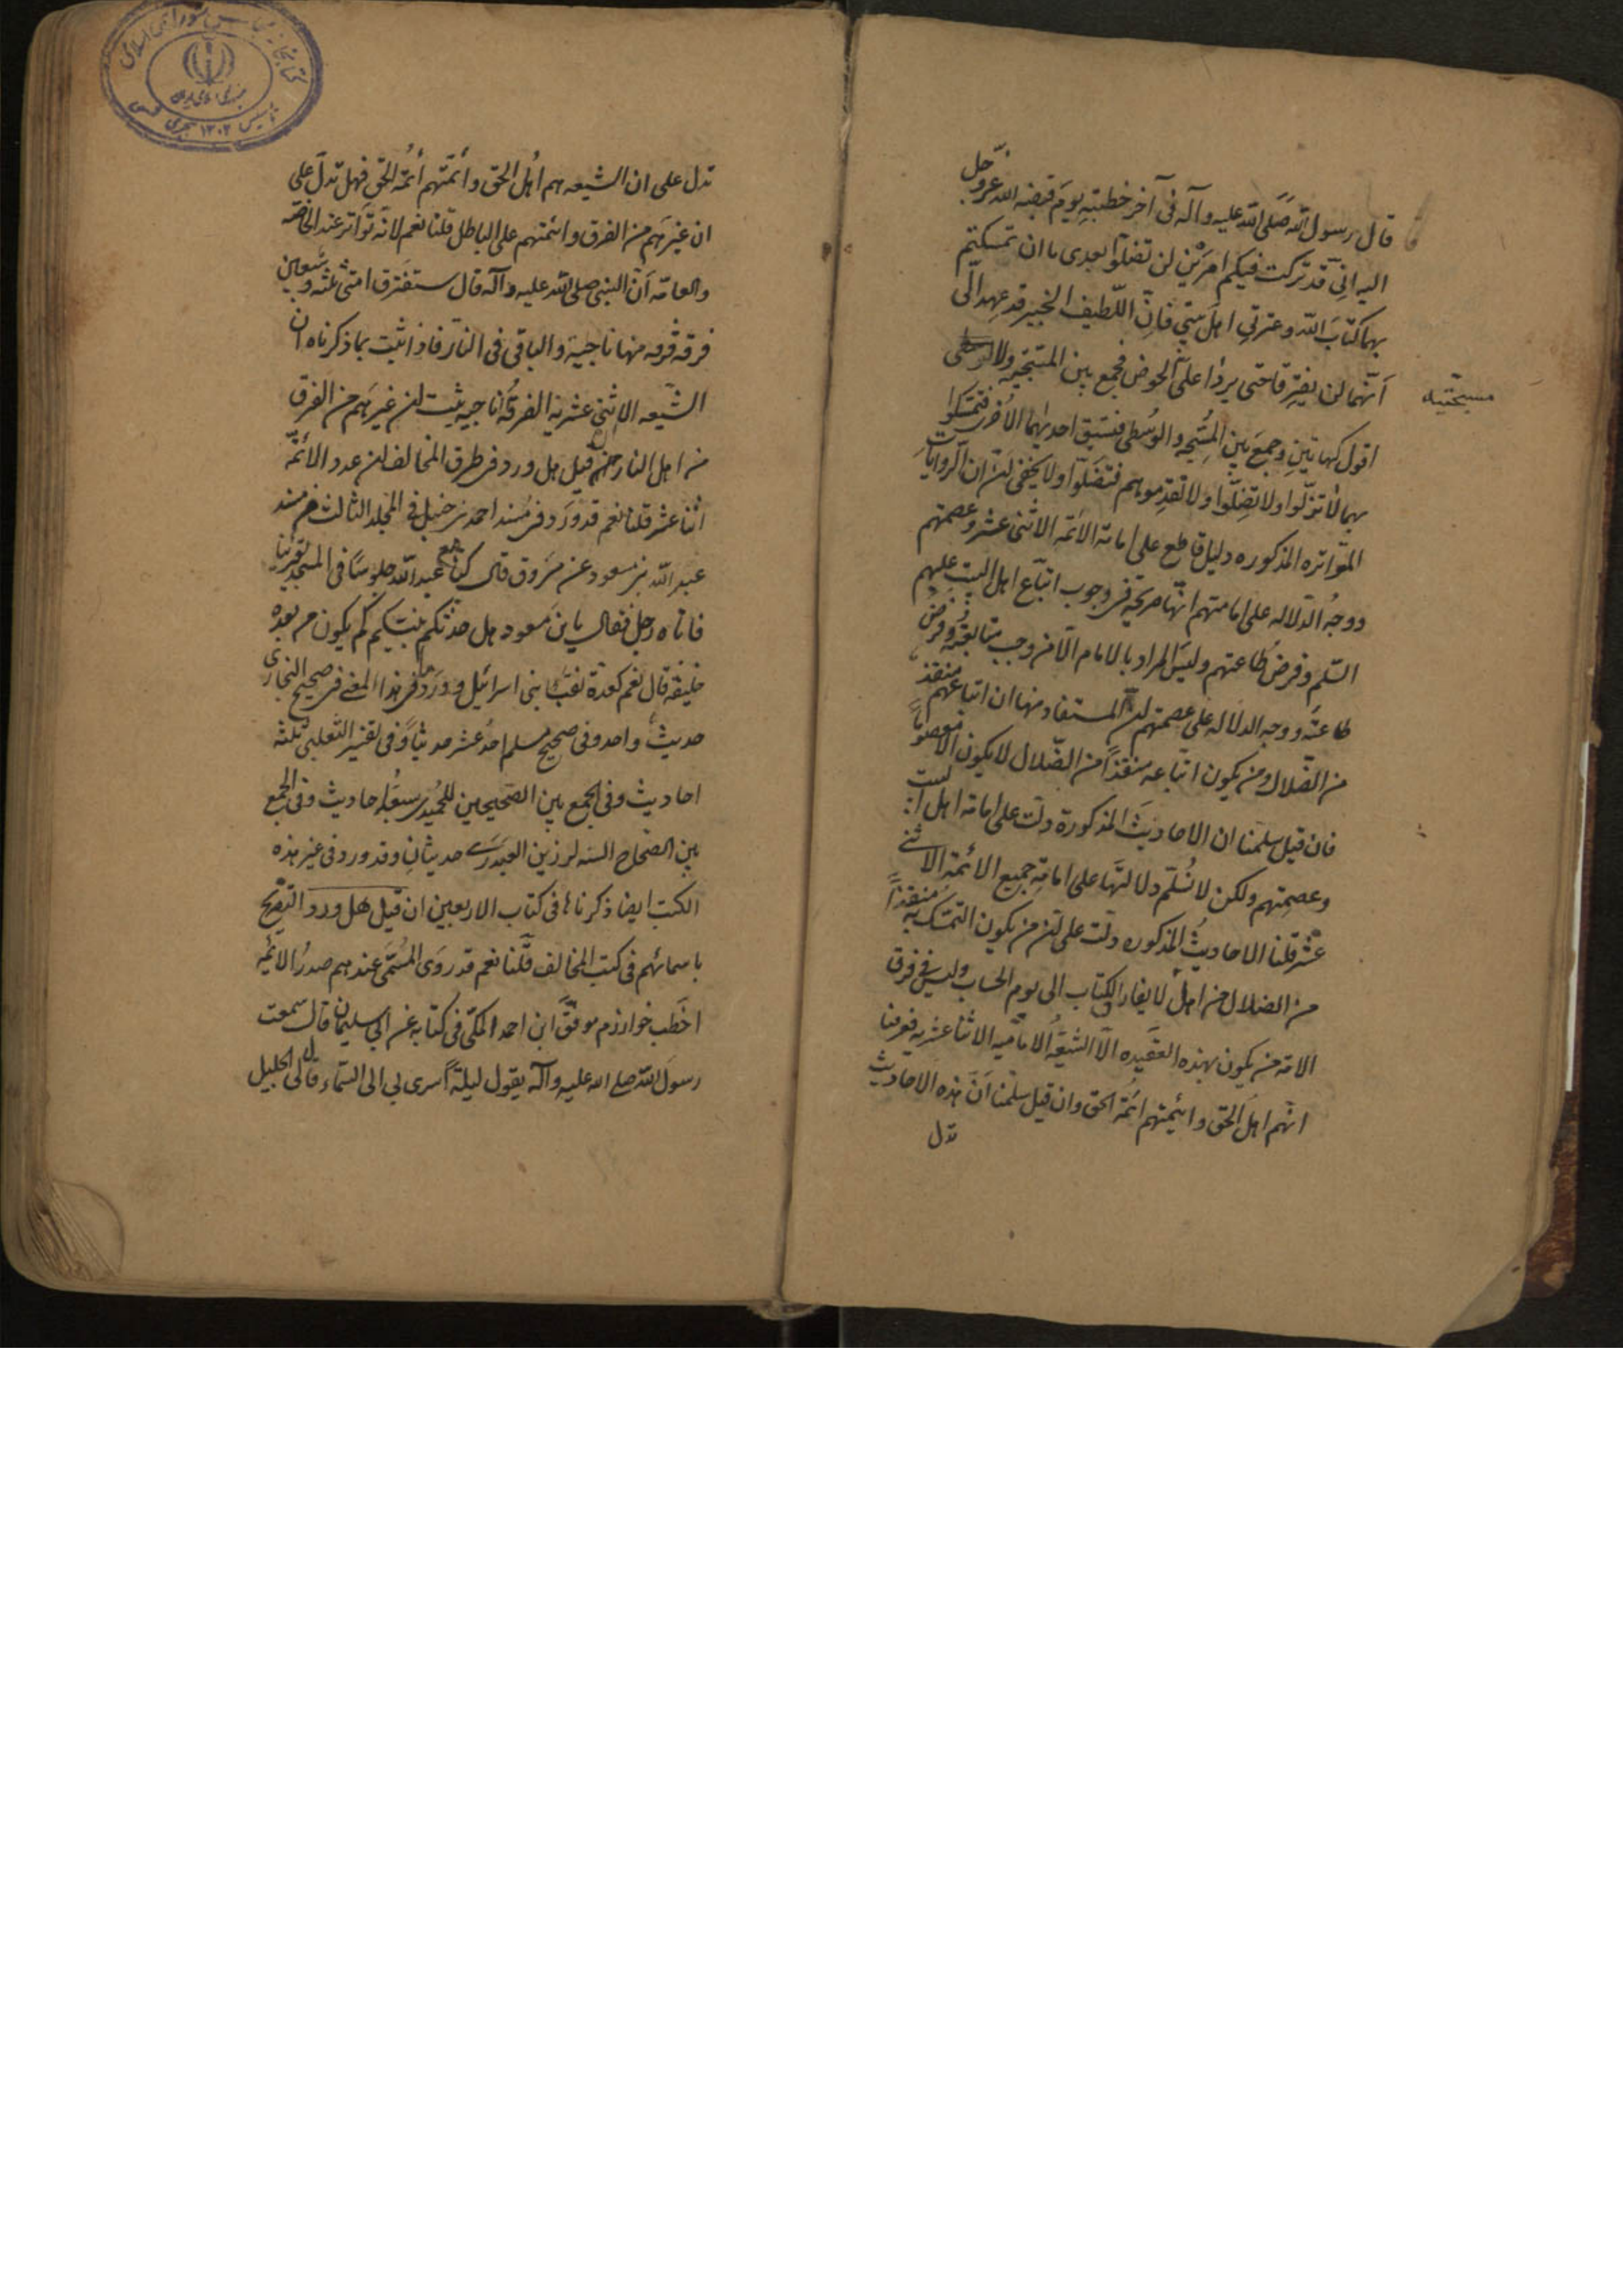 قال رسول الله صلى الله عليه وآله في آخر خطبته يوم قبضه الله عز وجل
اليه اني قد تركت فيكم امرين لن تضلوا بعدى ما ان تمسكتم
بهما كتاب الله وعترتي اهل بيتي فان اللطيف الخبير قد عهد الى
انهما لن يفترقا حتى يردا على الحوض فجمع بين المسبحه ولا
مسبحتيه
اقول كهاتين وجمع بين المسبحه والوسطى فتسبق احديهما الاخرى فتمسكوا
بهما لا تزلوا ولا تضلوا ولا تقدموهم فتضلوا ولا يخفى ان الروايات
المتواتره المذكوره دليل قاطع على امامة الائمه الاثنى عشر وعصمتهم
ووجه الدلاله على امامتهم انها صريحه فى وجوب اتباع اهل البيت عليهم
السلم وفرض طاعتهم وليس المراد بالامام الا من وجب متابعته وفرض
طاعته ووجه الدلاله على عصمتهم ان المستفاد منها ان اتباعهم منقذ
من الضلال ومن يكون اتباعه منقذا من الضلال لا يكون الا معصوما
فان قيل سلمنا ان الاحاديث المذكورة دلت على امامة اهل البيت
وعصمتهم ولكن لا نسلم دلالتها على امامة جميع الائمة الاثنى
عشر قلنا الاحاديث المذكوره دلت على ان من يكون التمسك به منقذا
من الضلال من اهل لا يفارق الكتاب الى يوم الحساب وليس فى فرق
الامة من يكون بهذه العقيده الا الشيعة الاماميه الاثنا عشريه فعرفنا
انهم اهل الحق وائيمتهم ائمة الحق وان قيل سلمنا ان هذه الاحاديث
تدل
تدل على ان الشيعه هم اهل الحق وأئمتهم أئمة الحق فهل تدل على
ان غيرهم من الفرق وائمتهم على الباطل قلنا نعم لانه تواتر عند الخاصه
والعامه أن النبي صلى الله عليه وآله قال ستفترق امتى ثلثه وسبعين
فرقه فرقه منها ناجيه والباقى فى النار فاذا ثبت بما ذكرناه ان
الشيعه الاثنى عشريه الفرقه الناجيه ثبت ان غيرهم من الفرق
من اهل النار قيل هل ورد فى طرق المخالف ان عدد الائمه
اثنا عشر قلنا نعم قد ورد فى مسند احمد بن حنبل فى المجلد الثالث من مسند
عبد الله بن مسعود عن مسروق قال كنا مع عبد الله جلوسا فى المسجد يقرئنا
فاتاه رجل فقال يابن مسعود هل حدثكم نبيكم كم يكون من بعده
خليفه قال نعم كعدة نقباء بنى اسرائيل وورد فى هذا المعنى فى صحيح البخارى
حديث واحد وفى صحيح مسلم احد عشر حديثا وفى تفسير الثعلبى ثلثه
احاديث وفى الجمع بين الصحيحين للحميدى سبعة احاديث وفى الجمع
بين الصحاح السته لرزين العبدرى حديثان وقد ورد فى غير هذه
الكتب ايضا ذكرناها فى كتاب الاربعين ان قيل هل ورد التصريح
باسمائهم فى كتب المخالف قلنا نعم قد روى المسمى عندهم صدر الائمه
اخطب خوارزم موفق ابن احمد المكى فى كتابه عن ابى سليمان قال سمعت
رسول الله صلى الله عليه وآله يقول ليلة اسرى بي الى السماء قال لى الجليل